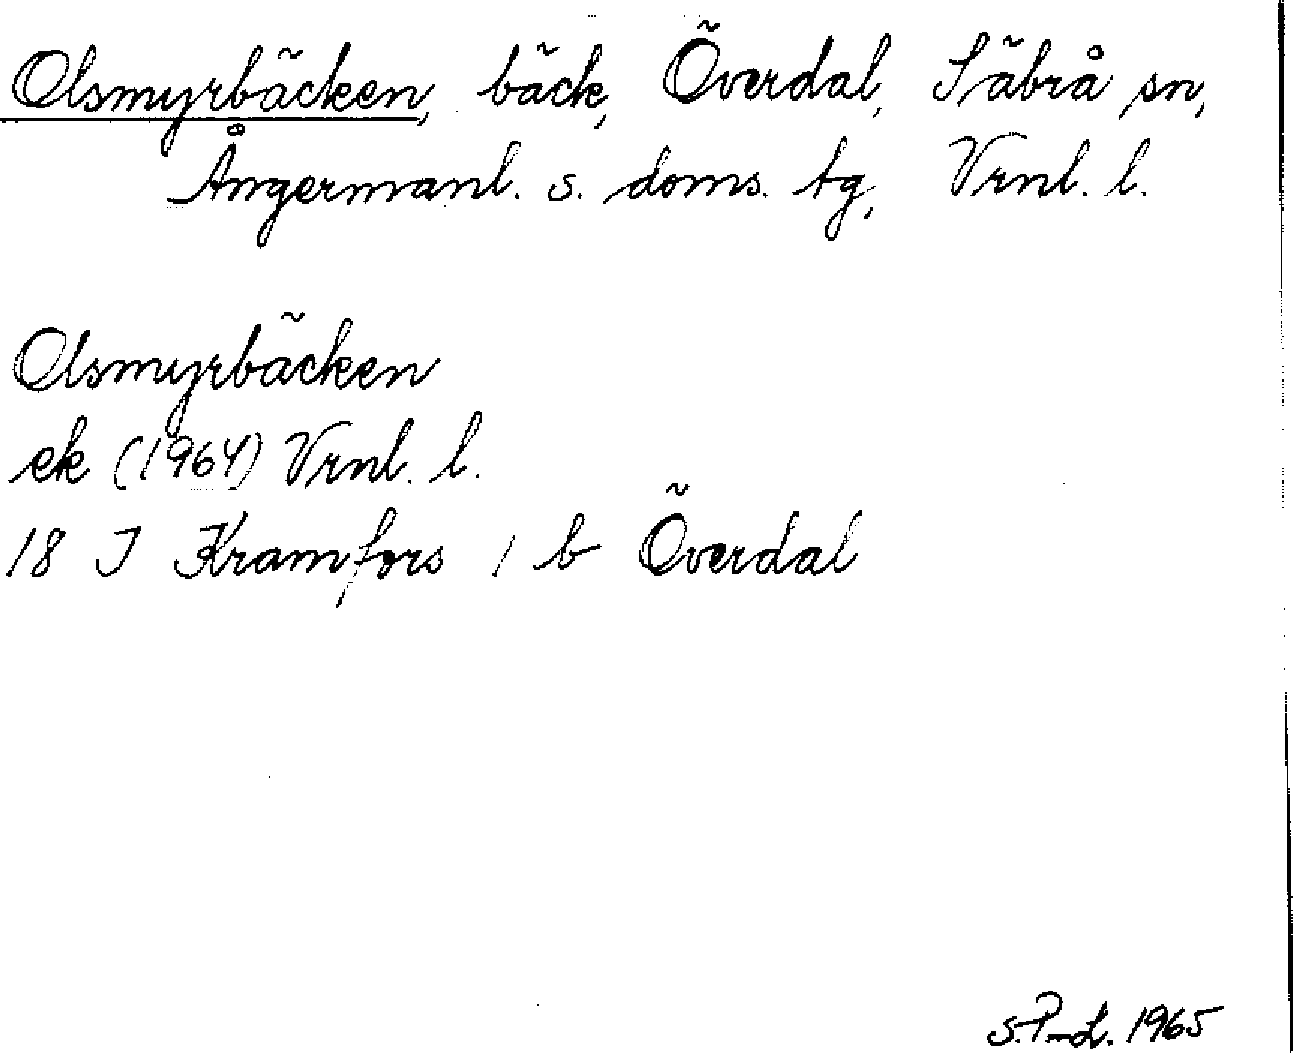 Olsmyrbäcken, bäck, Överdal, Säbrå sn,
Ångermanl. s. doms. tg, Vrnl. l.
Olsmyrbäcken
ek (1964) Vrnl. l.
18 I Kramfors 1 b Överdal
S.P-L. 1965